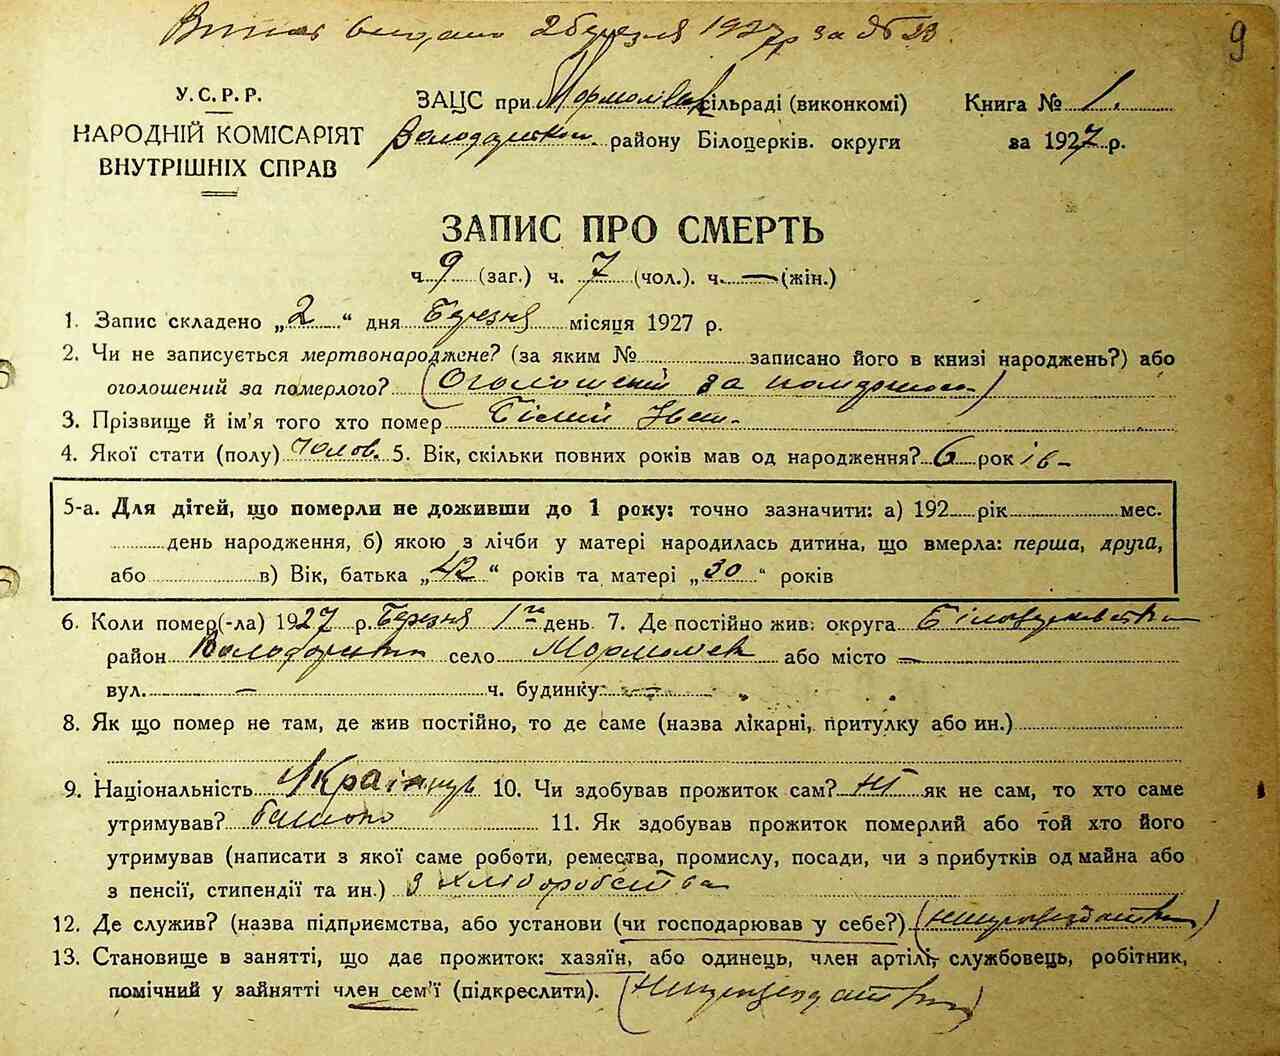 Випис видано 2 березня 1927 р за № 23.
9
У.С.Р.Р.
НАРОДНІЙ КОМІСАРІЯТ
ВНУТРІШНІХ СПРАВ
ЗАЦС при сільраді (виконкомі)
районy Білоцерків. округи
Книга № 1.
за 1927 р.
ЗАПИС ПРО СМЕРТЬ
ч. 9 (заг.) ч. 7 (чол.). ч. — (жін.)
1. Запис складено „2“ дня Березня місяця 1927 р.
2. Чи не записується мертвонароджене? (за яким № записано його в книзі народжень?) або
оголошений за померлого? (Оголошений за померлого)
3. Прізвище й ім'я того хто помер Білий Іван
4. Якої стати (полу) Чолов. 5. Вік, скільки повних років мав од народження? 6 рок ів –
5-а. Для дітей, що померли не доживши до 1 року: точно зазначити: а) 192 рік мес.
день народження, б) якою з лічби у матері народилась дитина, що вмерла: перша, друга,
або в) Вік, батька „42“ років та матері „30“ років
6. Коли помер(-ла) 1927 р. Березня 1го день 7. Де постійно жив: округа Білоцерківська
район село або місто —
вул. — ч. будинку —
8. Як що помер не там, де жив постійно, то де саме (назва лікарні, притулку або ин.)
9. Національність Українець 10. Чи здобував прожиток сам? Ні як не сам, то хто саме
утримував? батько 11. Як здобував прожиток померлий або той хто його
утримував (написати з якої саме роботи, ремества, промислу, посади, чи з прибутків од майна або
з пенсії, стипендії та ин.) З хліборобства
12. Де служив? (назва підприємства, або установи (чи господарював у себе?)
13. Становище в занятті, що дає прожиток: хазяїн, або одинець, член артілі, службовець, робітник,
помічний у зайнятті член сем'ї (підкреслити).